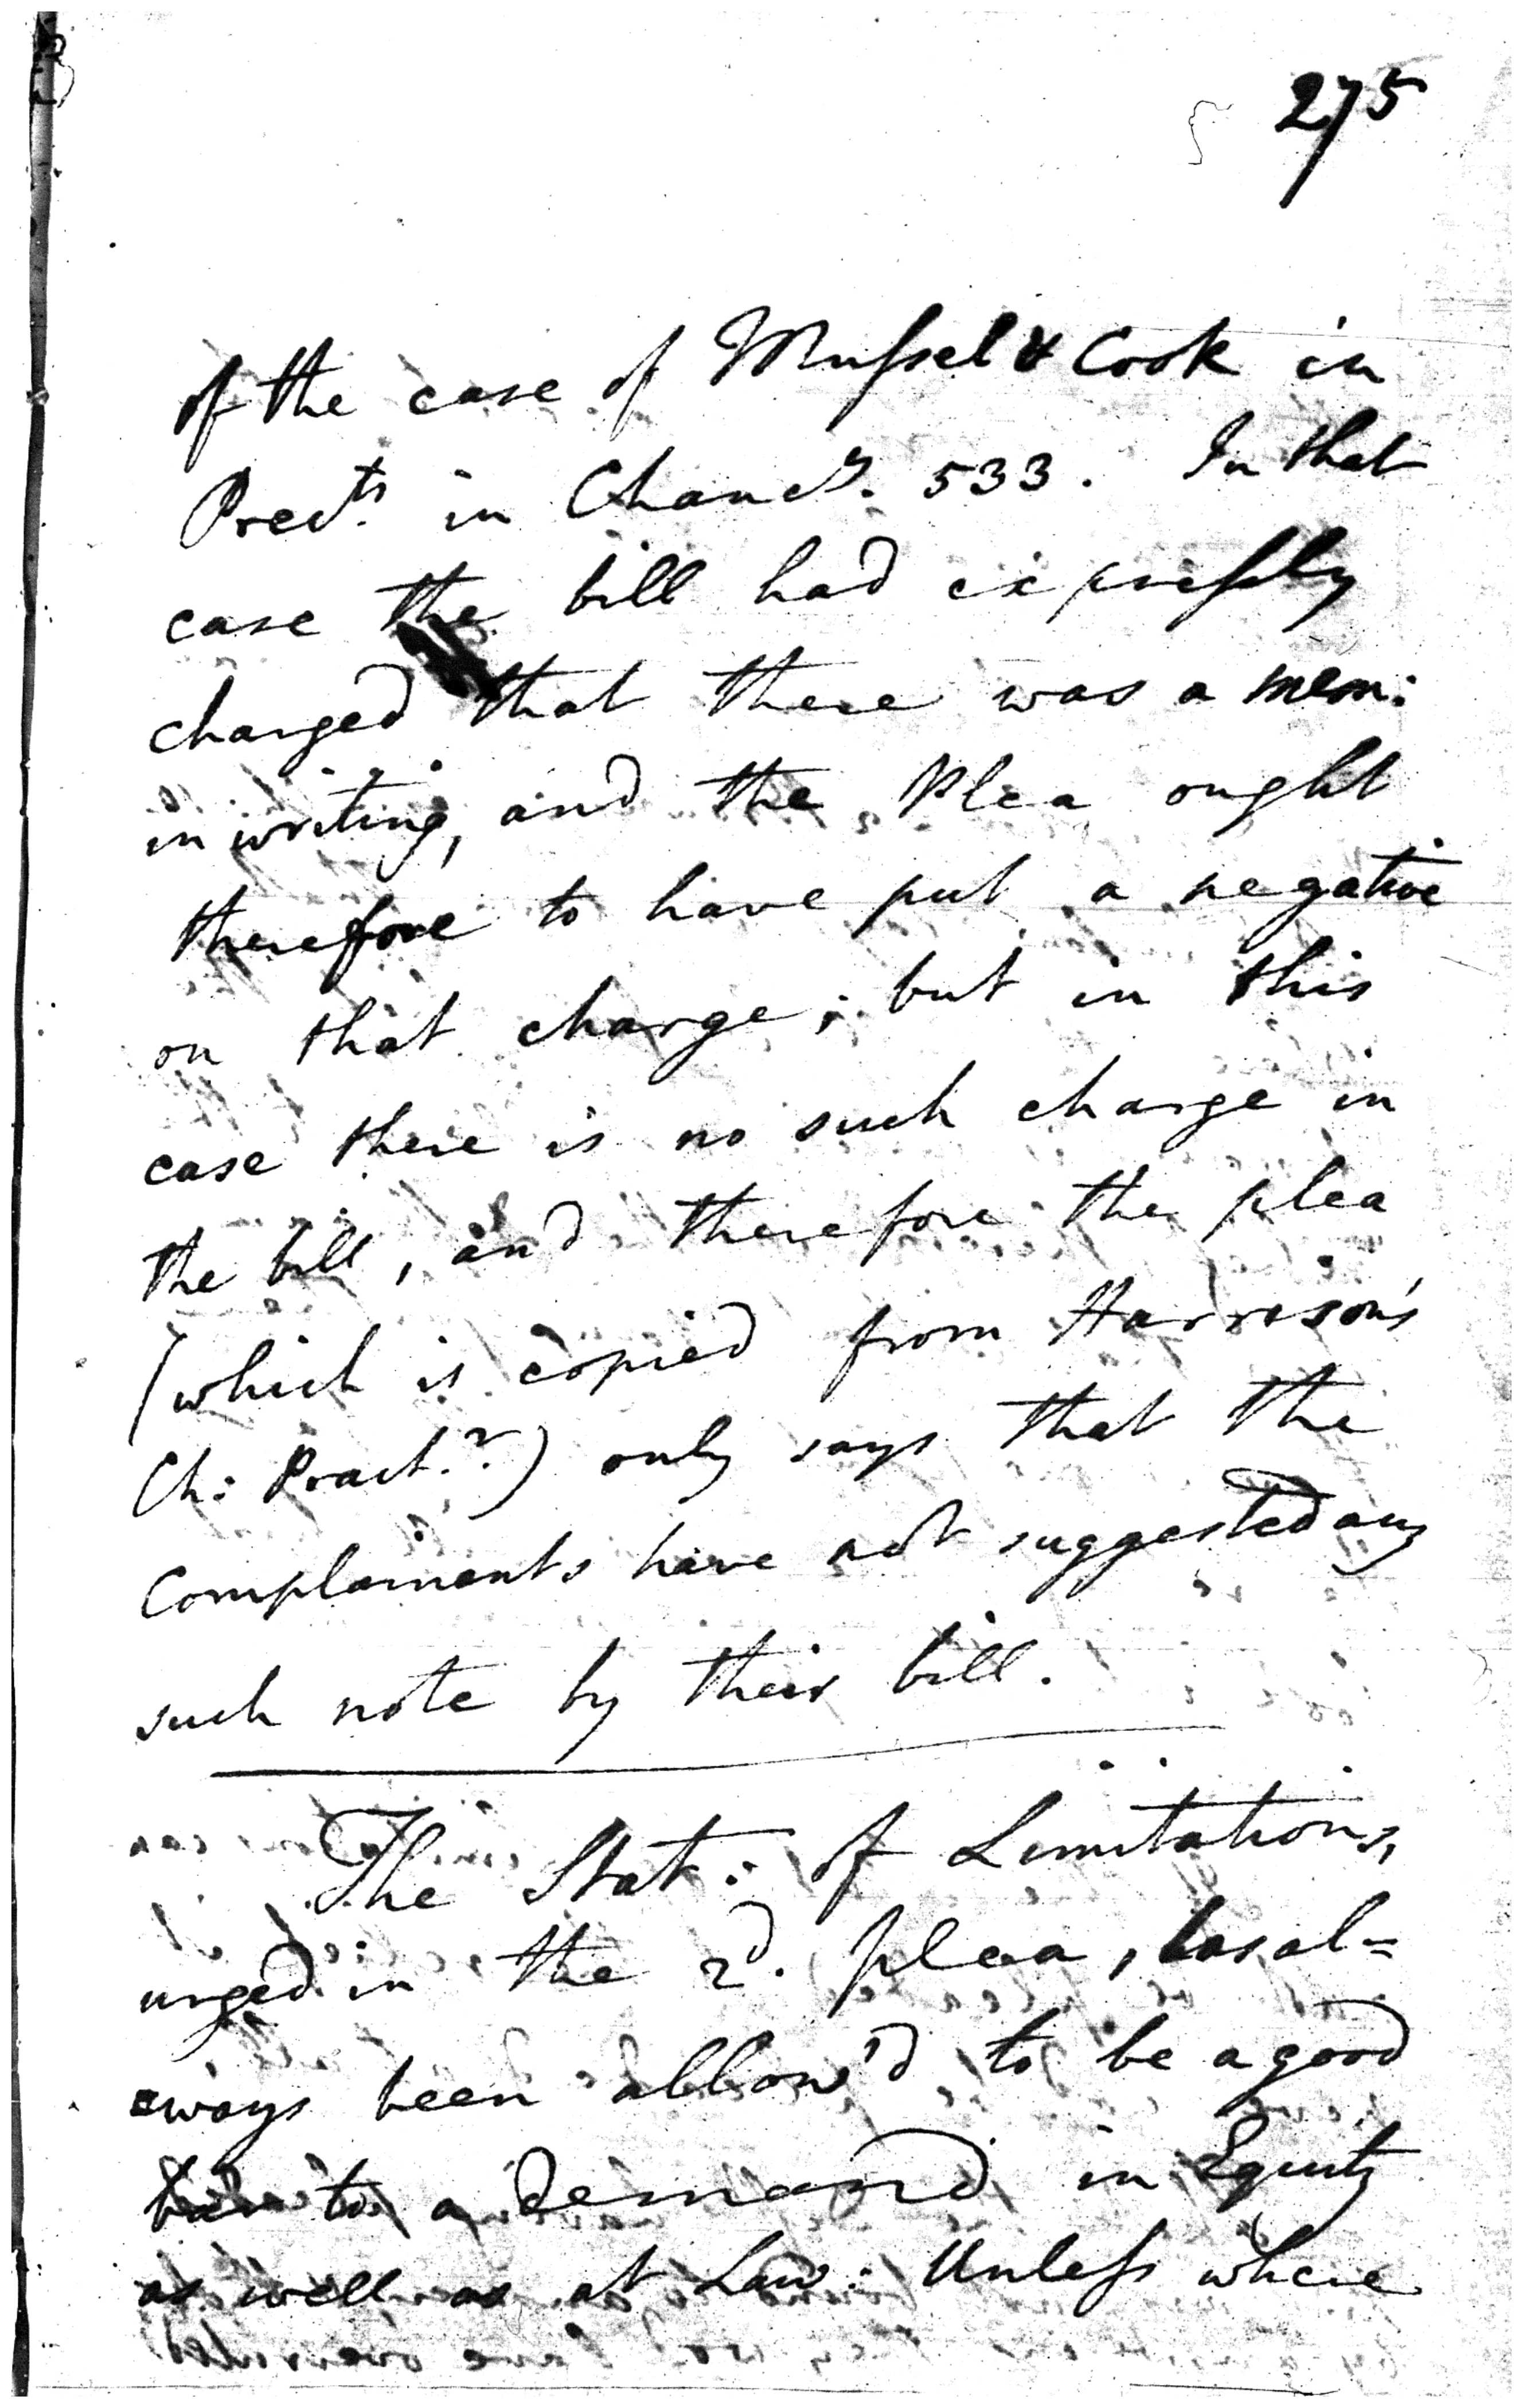 275
of the case of Mussel & Cook in
Prec.ts in Chanc.y. 533. In that
case the bill had expressly
charged that there was a mem:
in writing, and the Plea ought
therefore to have put a negative
on that charge; but in this
case there is no such charge in
the bill, and therefore the plea
(which is copied from Harrison's
Ch: Pract.r) only says that the
Complainants have not suggested any
such note by their bill.
The Stat: of Limitations,
urged in the 2d. plea, has al=
=ways been allow'd to be a good
bar to a demand in Equity
as well as at Law: Unless where